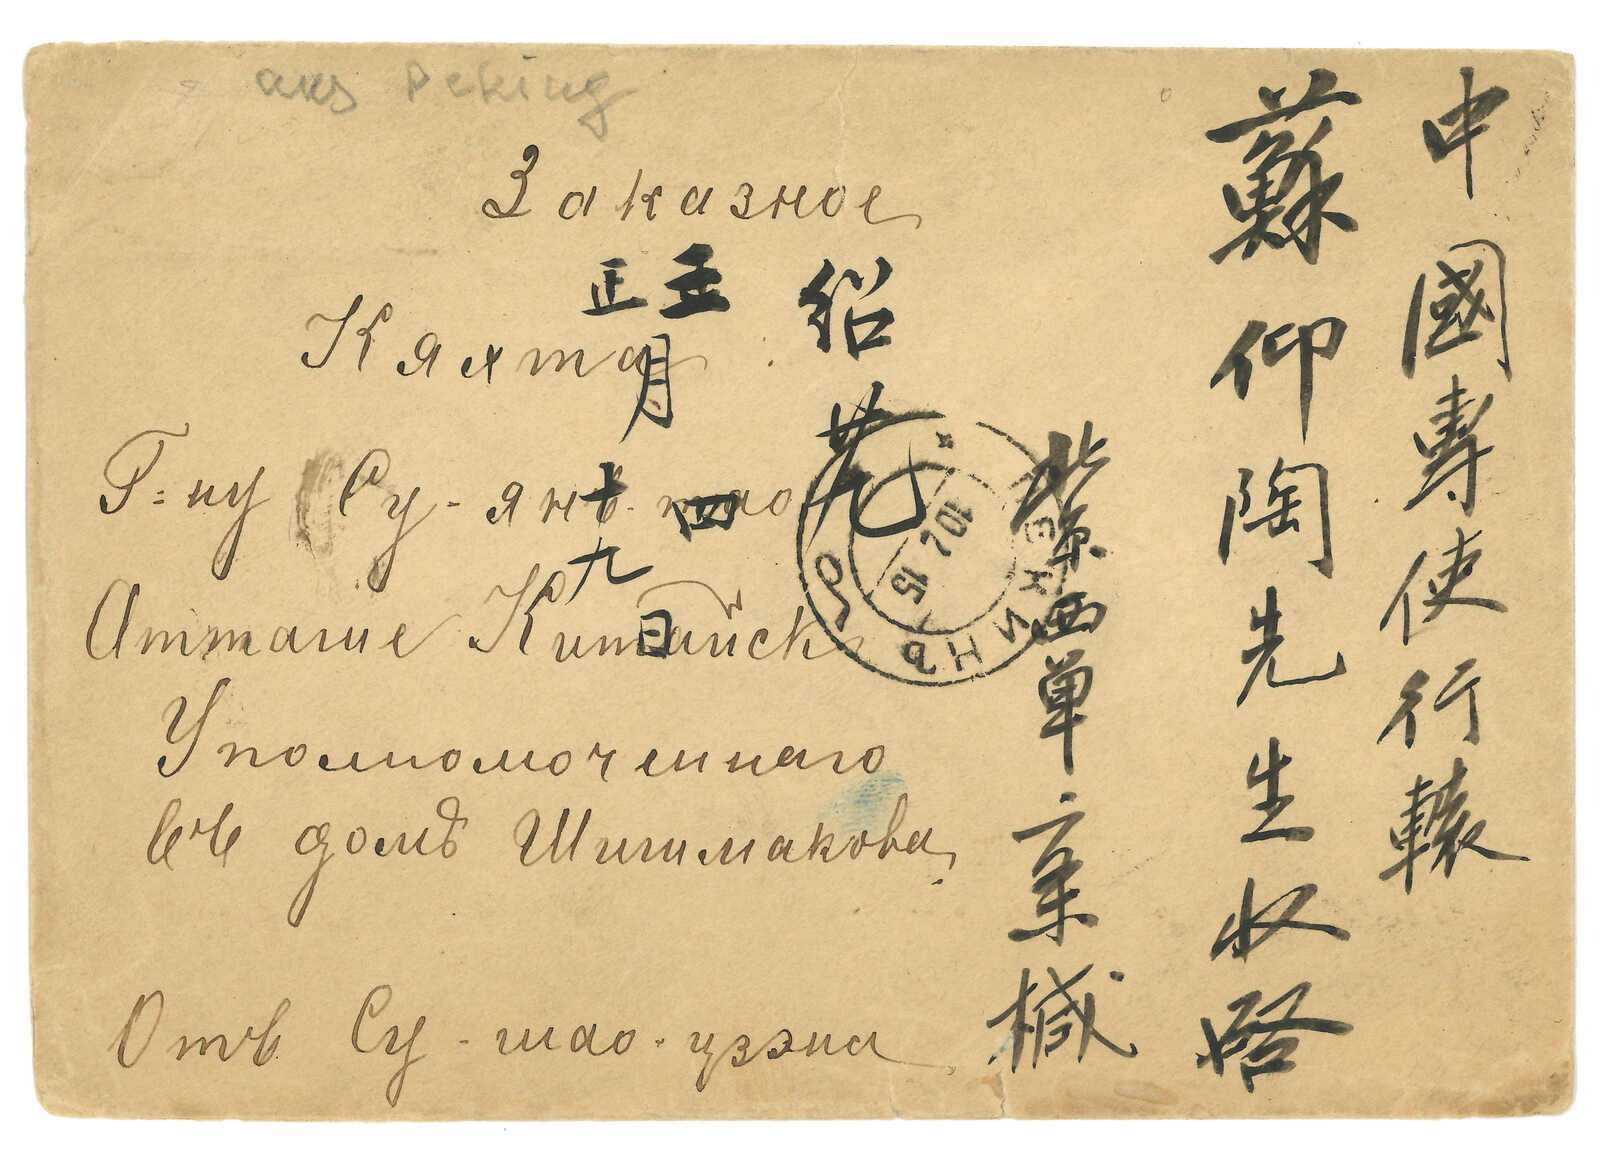 aus Peking
Заказное
Кяхта
Г=ну Су-янъ-тао
Атташе Китайск.
Уполномоченнаго
въ домѣ Шишмакова,
Отъ Су-шао-цзэна
中國專使行轅
蘇仰陶先生收啓
北京西單
緘
紹
正月
十九
四
日
ПЕКИНЪ
10 2 15